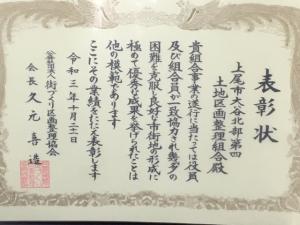 表彰状
上尾市大谷北部第四
土地区画整理組合殿
貴組合事業の遂行に当たっては役員
及び組合員が一致協力され幾多の
困難を克服し良好な市街地の形成に
極めて優秀な成果を挙げられたことは
他の模範であります
ここにその業績をたたえ表彰します
令和三年十月二十一日
公益社団法人街づくり区画整理協会
会長久元喜造